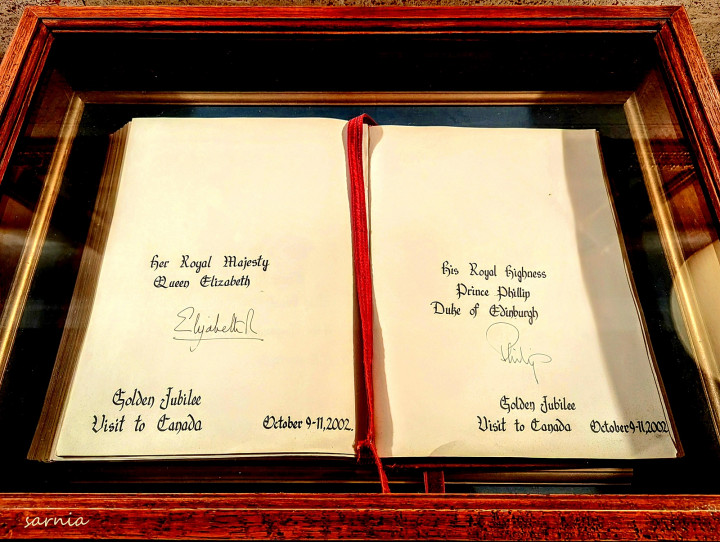 Her Royal Majesty
Queen Elizabeth
Elizabeth R
Golden Jubilee
Visit to Canada October 9-11, 2002.
His Royal Highness
Prince Phillip
Duke of Edinburgh
Philip
Golden Jubilee
Visit to Canada October 9-11, 2002
sarnia